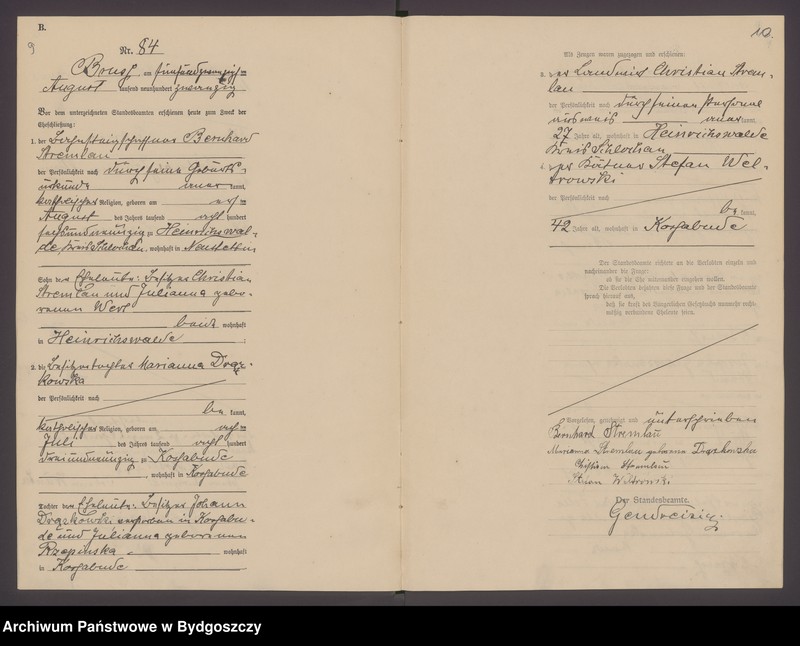 B.
9
Nr. 84
Brusz am fünfundzwanzig=
August tausend neunhundert zwanzig
Vor dem unterzeichneten Standesbeamten erschienen heute zum Zweck der
Eheschließung:
1. der Bernhard
Stremlau
der Persönlichkeit nach durch seine Geburts-
urkunde kannt,
katholischer Religion, geboren am
August des Jahres tausend acht hundert
sechsundneunzig zu Heinrichswal-
de, Kreis Schlochau, wohnhaft in Neustettin
Sohn der Eheleute: Besitzer Christian
Stremlau und Julianna gebo-
renen
beide wohnhaft
in Heinrichswalde ;
2. die Besitzertochter Marianna Dręz-
kowska
der Persönlichkeit nach
be kannt,
katholischer Religion, geboren am
Juli des Jahres tausend acht hundert
dreiundneunzig zu Kossabude
, wohnhaft in Kossabude
Tochter der Eheleute: Besitzer Johann
verstorben in Kossabu-
de und Julianna geborenen
Rzepinska wohnhaft
in Kossabude
10.
Als Zeugen waren zugezogen und erschienen:
3. der Landwirt Christian Strem-
lau
der Persönlichkeit nach durch seinen Personal
ausweis kannt,
27 Jahre alt, wohnhaft in Heinrichswalde
Kreis Schlochau
4. der Stefan Wel-
trowski
der Persönlichkeit nach
be kannt,
42 Jahre alt, wohnhaft in Kossabude
Der Standesbeamte richtete an die Verlobten einzeln und
nacheinander die Frage:
ob sie die Ehe miteinander eingehen wollen.
Die Verlobten bejahten diese Frage und der Standesbeamte
sprach hierauf aus,
daß sie kraft des Bürgerlichen Gesetzbuchs nunmehr recht-
mäßig verbundene Eheleute seien.
Vorgelesen, genehmigt und unterschrieben
Bernhard Stremlau
Marianna Stremlau geborene
Christian Stremlau
Der Standesbeamte.
Archiwum Państwowe w Bydgoszczy